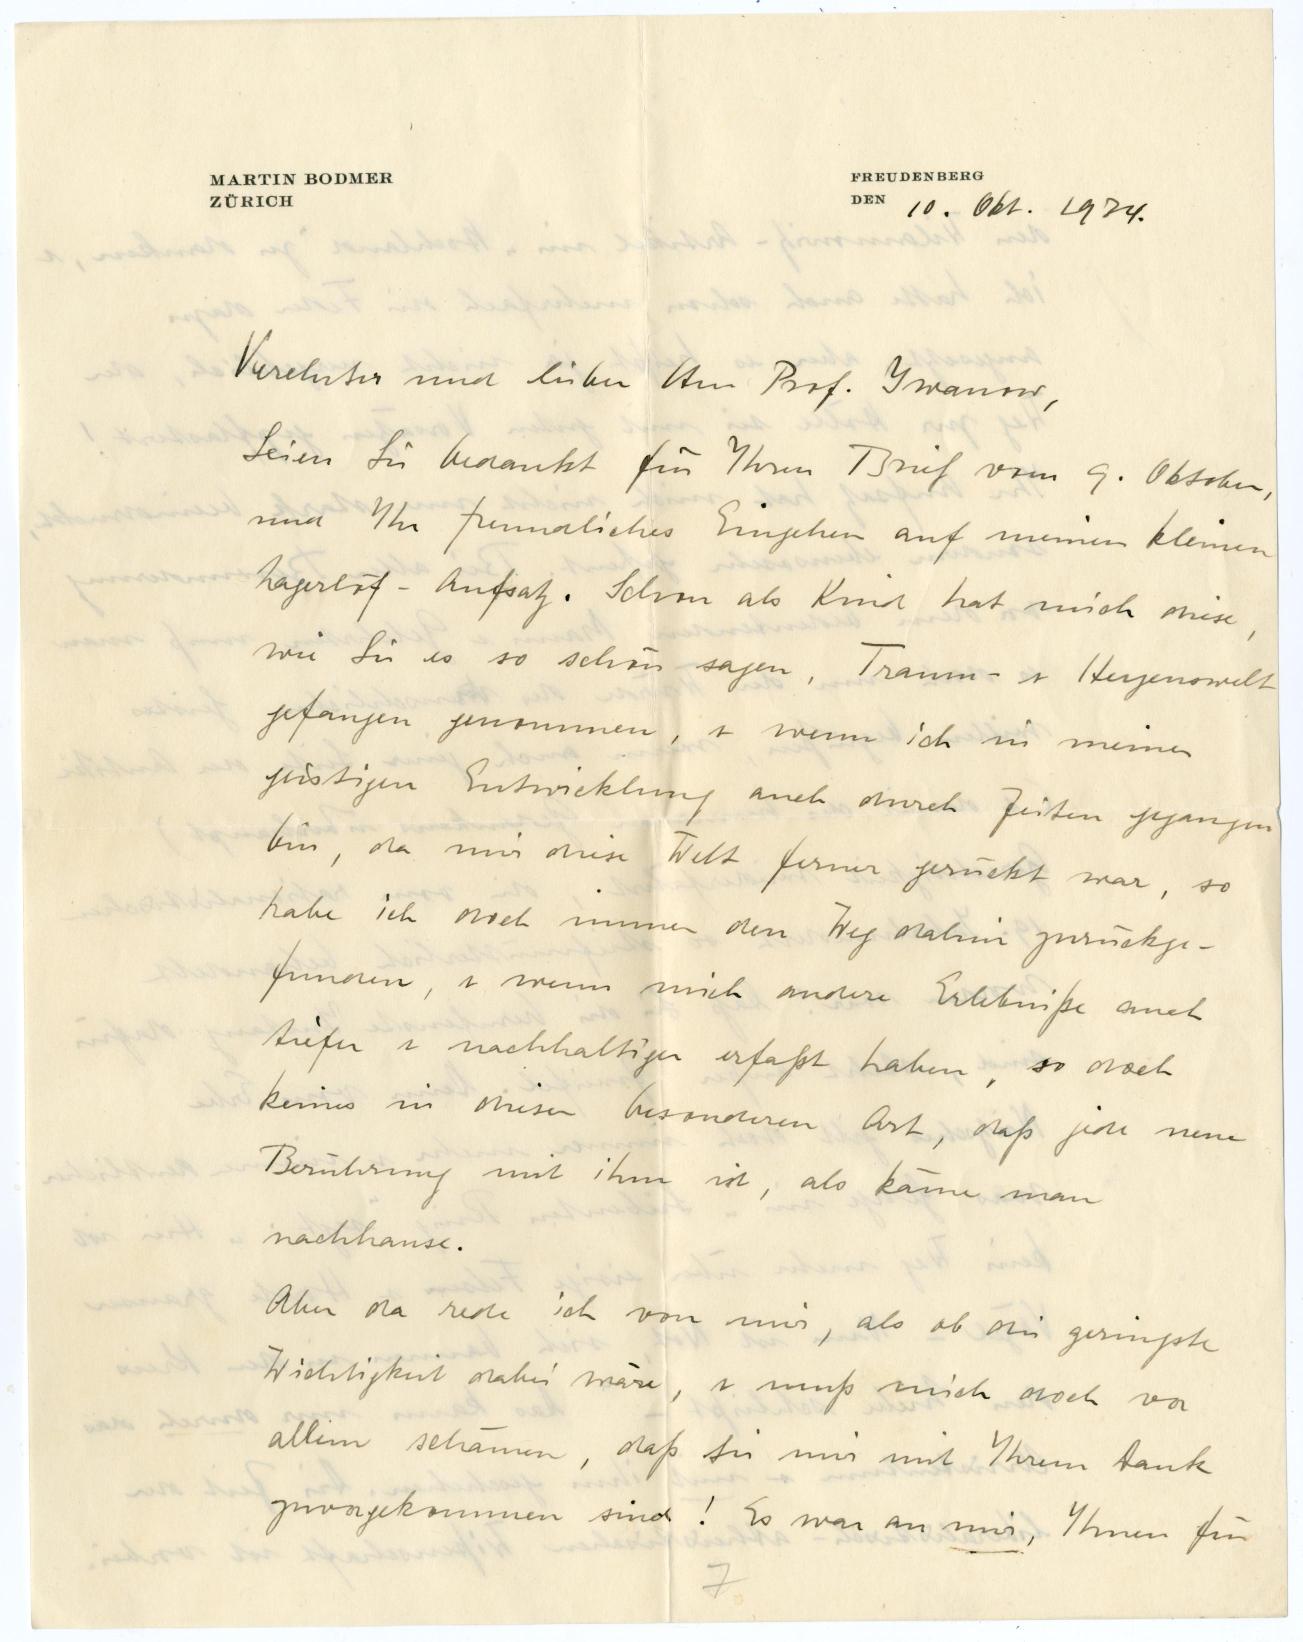 MARTIN BODMER
ZÜRICH
FREUDENBERG
DEN 10. Okt. 1934.
Verehrter und lieber Herr Prof. Iwanow,
Seien Sie bedankt für Ihren Brief vom 9. Oktober,
und Ihr freundliches Eingehen auf meinen kleinen
Lagerlöf-Aufsatz. Schon als Kind hat mich diese,
wie Sie es so schön sagen, Traum- u Herzenswelt
gefangen genommen, u wenn ich in meiner
geistigen Entwicklung auch durch Zeiten gegangen
bin, da mir diese Welt ferner gerückt war, so
habe ich doch immer den Weg dahin zurückge-
funden, u wenn mich andere Erlebniße auch
tiefer u nachhaltiger erfaßt haben, so doch
keines in dieser besonderen Art, daß jede neue
Berührung mit ihm ist, als käme man
nachhause.
Aber da rede ich von mir, als ob die geringste
Wichtigkeit dabei wäre, u muß mich doch vor
allem schämen, daß Sie mir mit Ihrem Dank
zuvorgekommen sind! Es war an mir, Ihnen für
7